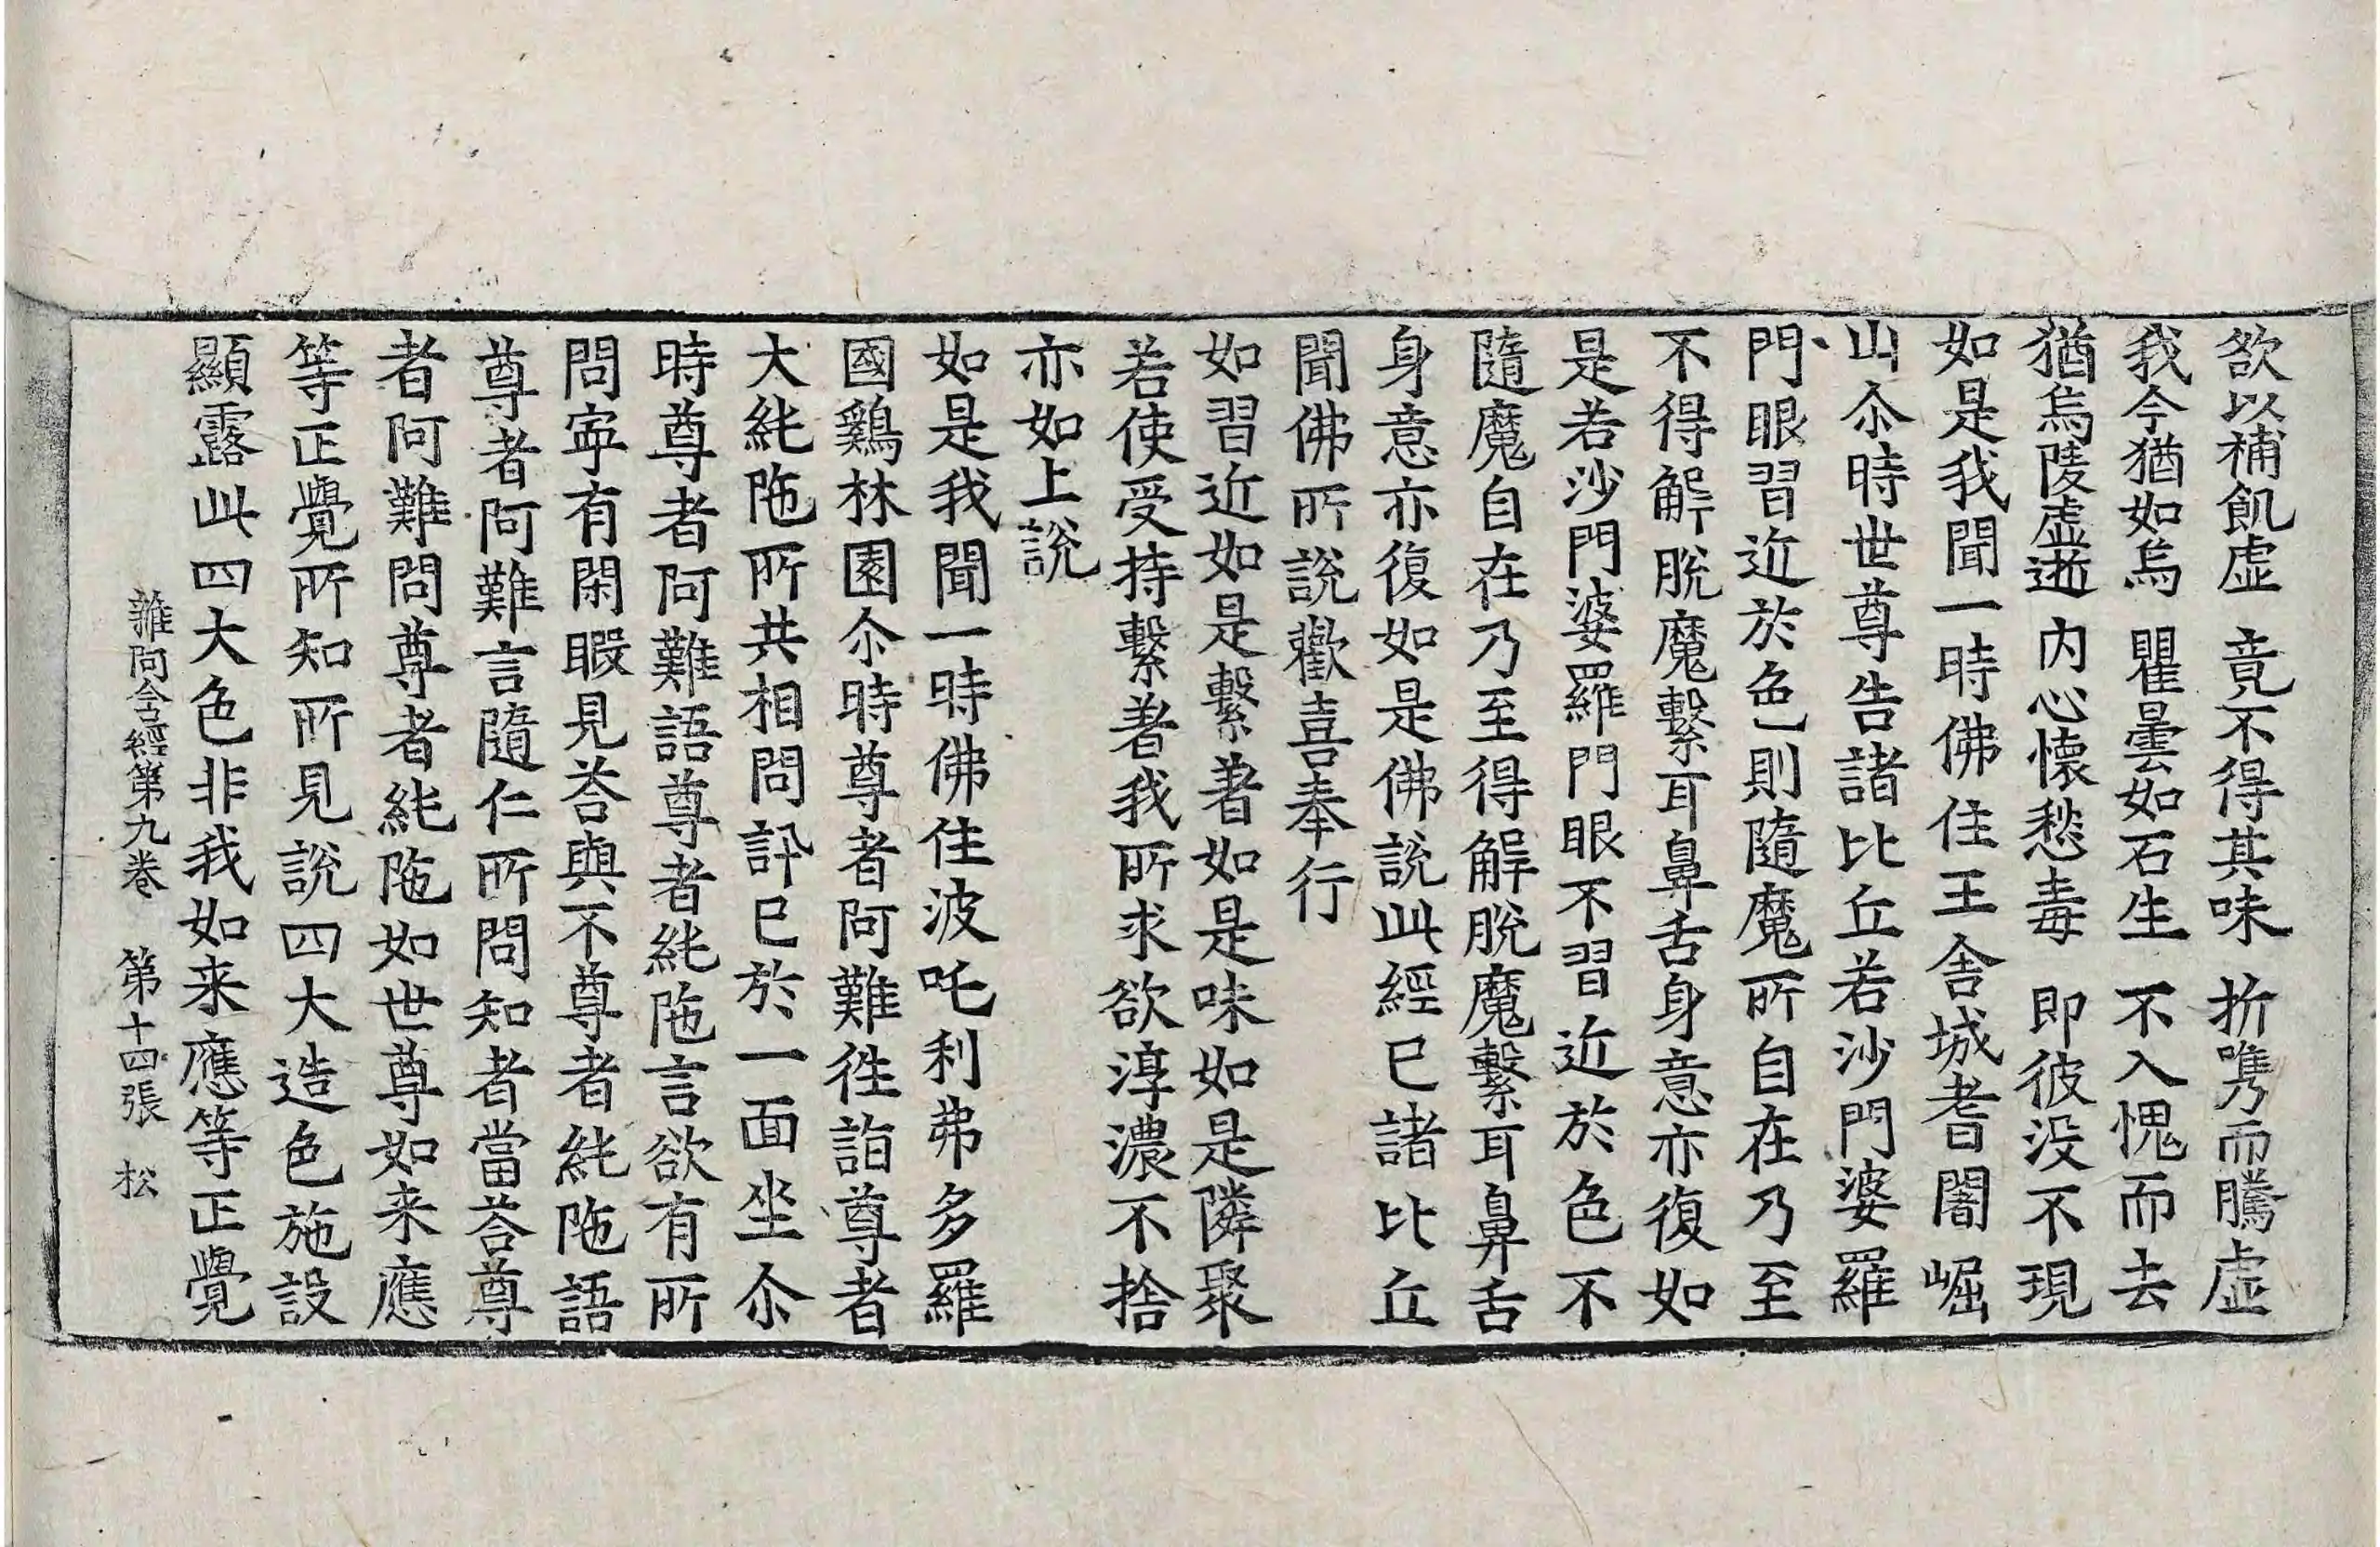 欲以補飢虛　竟不得其味　折嶲而騰虛
我今猶如烏　瞿曇如石生　不入愧而去
猶烏陵虛逝　内心懷愁毒　即彼没不現
如是我聞一時佛住王舍城耆闍崛
山尒時世尊告諸比丘若沙門婆羅
門眼習近於色則隨魔所自在乃至
不得解脫魔繫耳鼻舌身意亦復如
是若沙門婆羅門眼不習近於色不
隨魔自在乃至得解脫魔繫耳鼻舌
身意亦復如是佛說此經已諸比丘
聞佛所說歡喜奉行
如習近如是繫著如是味如是隣聚
若使受持繫著我所求欲淳濃不捨
亦如上說
如是我聞一時佛住波吒利弗多羅
國鷄林園尒時尊者阿難徃詣尊者
大純陁所共相問訊已於一面坐尒
時尊者阿難語尊者純陁言欲有所
問寜有閑暇見荅與不尊者純陁語
尊者阿難言隨仁所問知者當荅尊
者阿難問尊者純陁如世尊如来應
等正覺所知所見說四大造色施設
顯露此四大色非我如来應等正覺
雜阿含經第九卷　第十四張　松